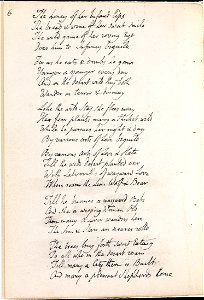 6
The honey of her Infant lips
The bread & wine of her sweet smile
The wild game of her roving Eye
Does him to Infancy beguile
For as he eats & drinks he grows
Younger & younger every day
And on the desart wild they both
Wander in terror & dismay
Like the wild Stag she flees away
Her fear plants many a thicket wild
While he pursues her night & day
By various arts of Love beguild
By various arts of Love & Hate
Till the wide desart planted oer
With Labyrinths of wayward Love
Where roams the Lion Wolf & Boar
Till he becomes a wayward Babe
And she a weeping Woman Old
Then many a Lover wanders here
The Sun & Stars are nearer rolld
The trees bring forth sweet Extacy
To all who in the desart roam
Till many a City there is Built
And many a pleasant Shepherds home